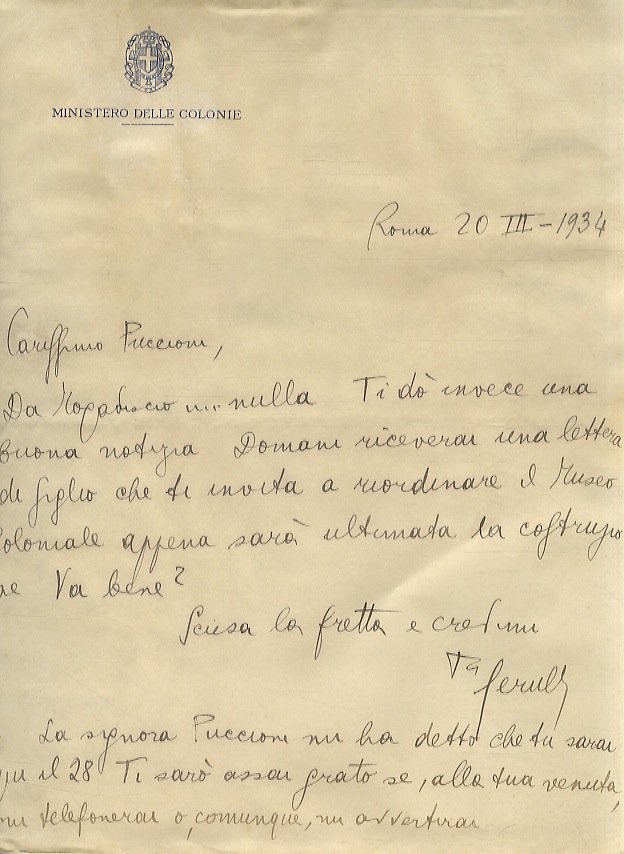 MINISTERO DELLE COLONIE
Roma 20 III - 1934
Carissimo Puccioni,
Da Mogadiscio ... nulla Ti dò invece una
buona notizia Domani riceverai una lettera
di Giglio che ti invita a riordinare il Museo
Coloniale appena sarà ultimata la costruzio
ne Va bene?
Scusa la fretta e credimi
La signora Puccioni mi ha detto che tu sarai
qui il 28 Ti sarò assai grato se, alla tua venuta,
mi telefonerai o, comunque, mi avvertirai